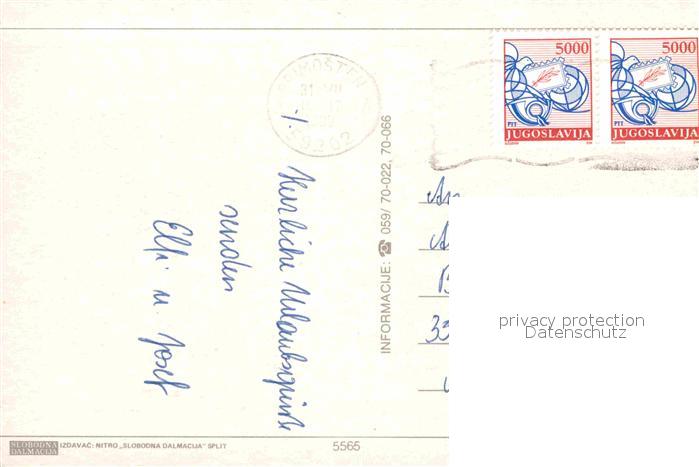 5000
PTT
JUGOSLAVIJA
5000
PTT
JUGOSLAVIJA
PRIMOŠTEN
31. VII
59202
Herzliche Urlaubsgrüße
senden
Elfi u. Josef
INFORMACIJE: ☎ 059/ 70-022, 70-066
33
privacy protection
Datenschutz
SLOBODNA
DALMACIJA
IZDAVAČ: NITRO „SLOBODNA DALMACIJA" SPLIT
5565